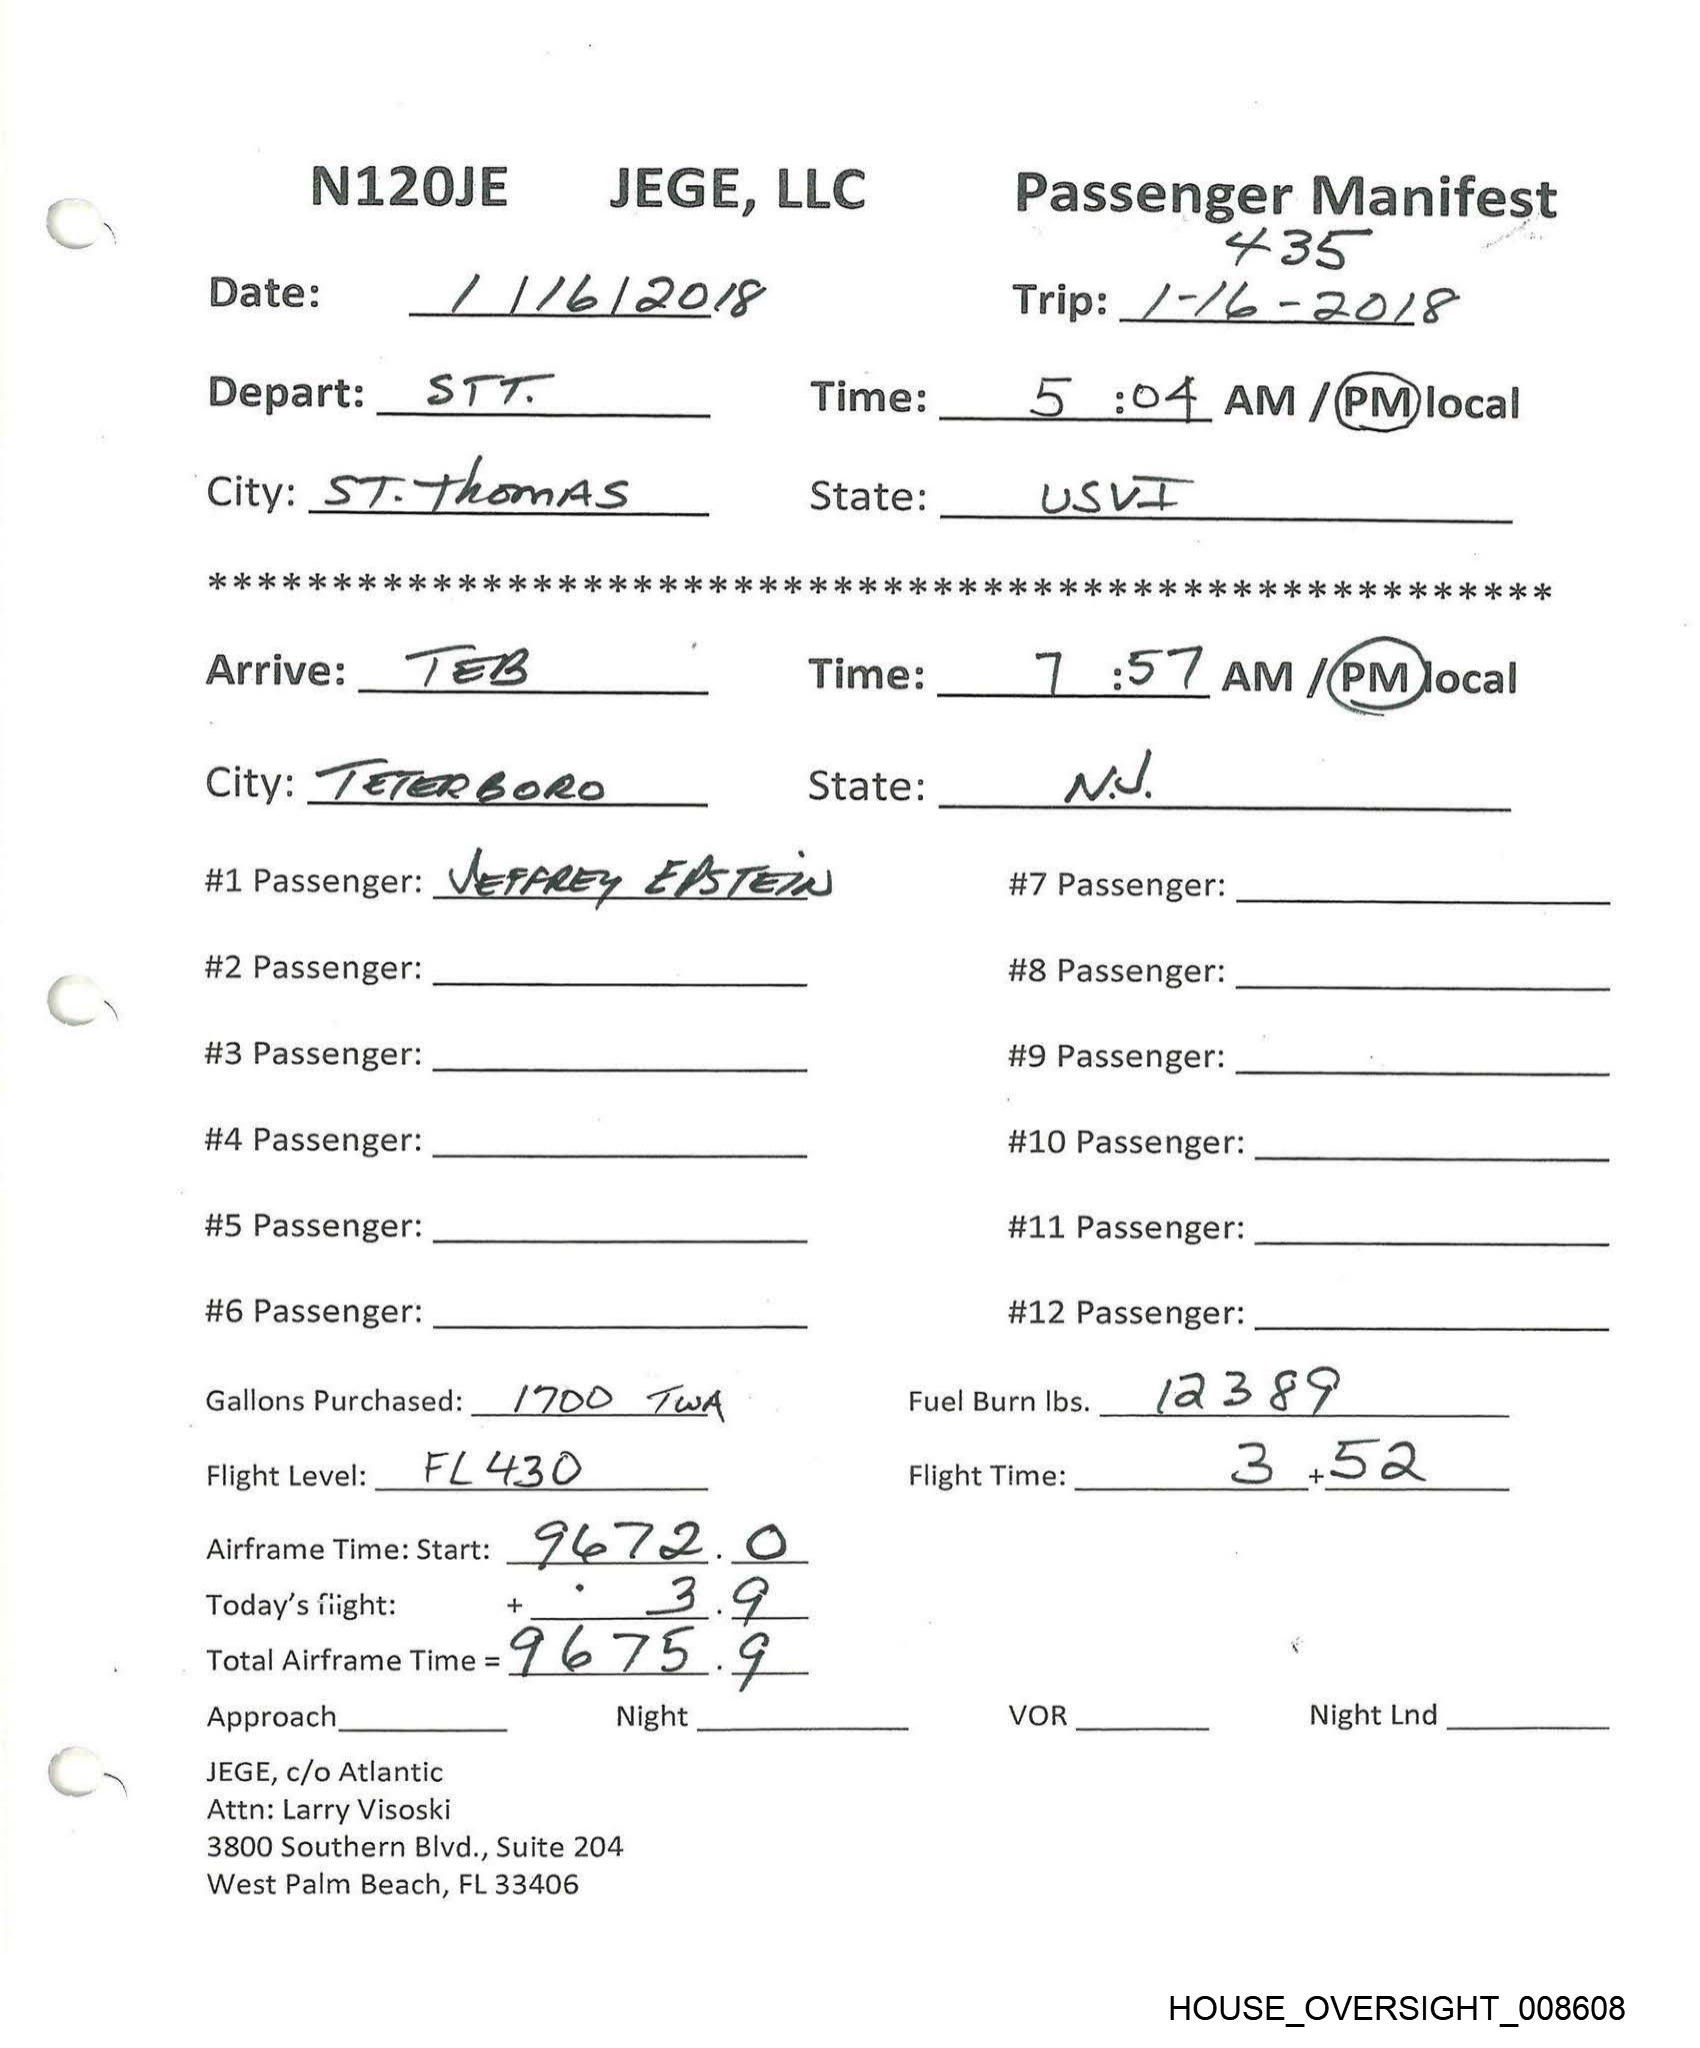 N120JE JEGE, LLC Passenger Manifest
435
Date: 1/16/2018 Trip: 1-16-2018
Depart: STT. Time: 5:04 AM / PM local
City: ST. Thomas State: USVI
******************************************************
Arrive: TEB Time: 7:57 AM / PM local
City: TETERBORO State: N.J.
#1 Passenger: JEFFREY EPSTEIN #7 Passenger:
#2 Passenger: #8 Passenger:
#3 Passenger: #9 Passenger:
#4 Passenger: #10 Passenger:
#5 Passenger: #11 Passenger:
#6 Passenger: #12 Passenger:
Gallons Purchased: 1700 TWA Fuel Burn lbs. 12389
Flight Level: FL430 Flight Time: 3 + 52
Airframe Time: Start: 9672.0
Today's flight: + 3.9
Total Airframe Time = 9675.9
Approach Night VOR Night Lnd
JEGE, c/o Atlantic
Attn: Larry Visoski
3800 Southern Blvd., Suite 204
West Palm Beach, FL 33406
HOUSE_OVERSIGHT_008608